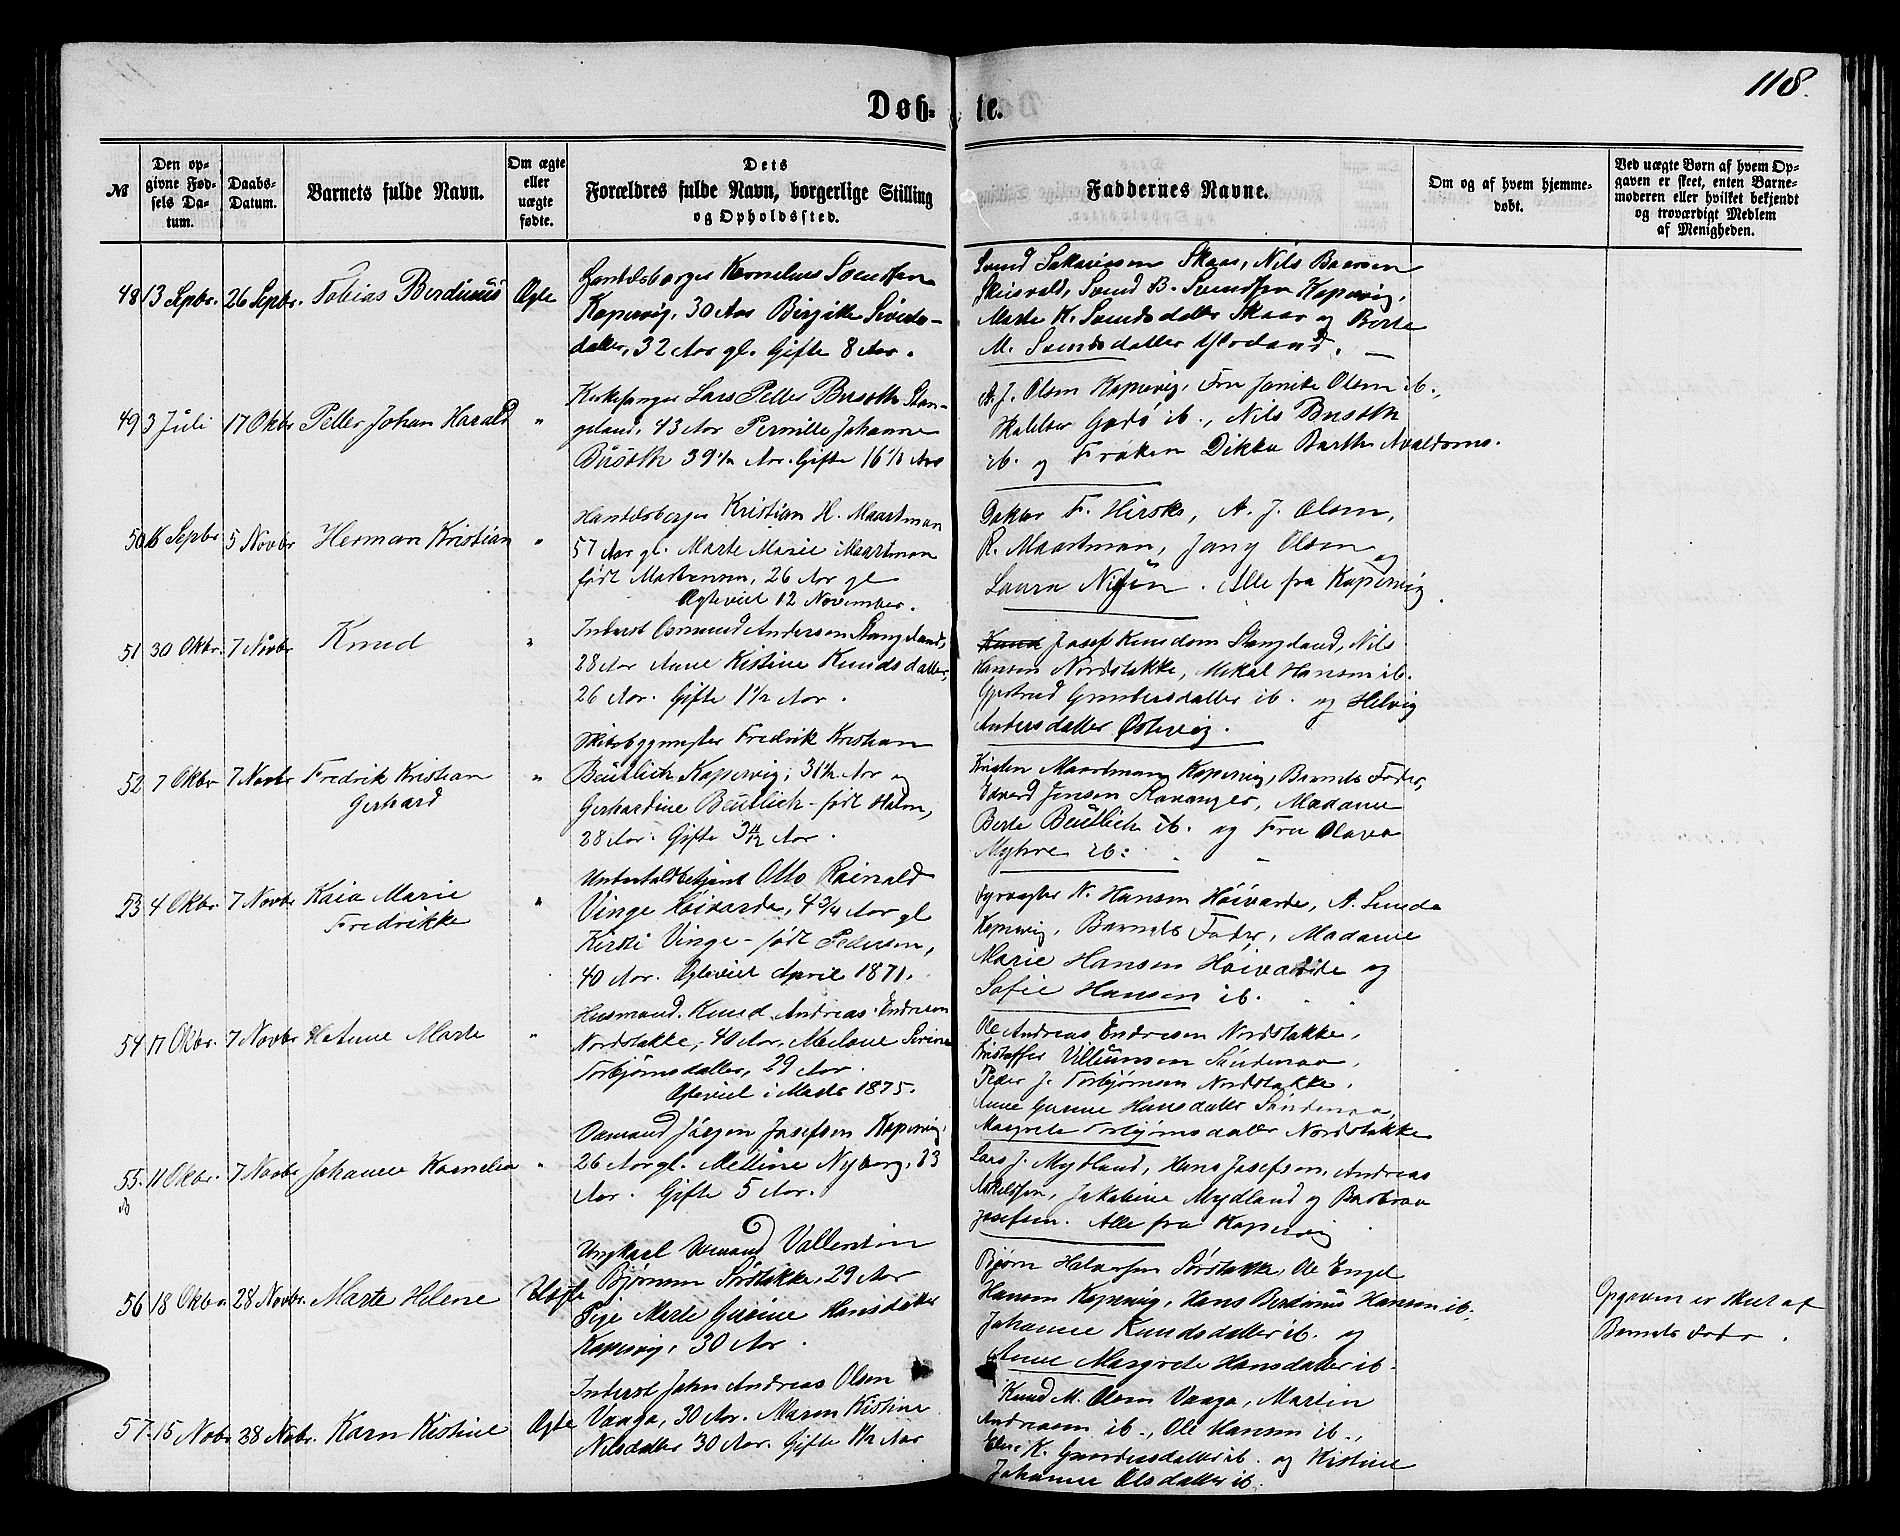 118.
Døb= te.
№
Den op=
givne Fød=
sels Da=
tum.
Daabs=
Datum.
Barnets fulde Navn.
Om ægte
eller
uægte
fødte.
Dets
Forældres fulde Navn, borgerlige Stilling
og Opholdssted.
Faddernes Navne.
Om og af hvem hjemme=
døbt.
Ved uægte Børn af hvem Op=
gaven er skeet, enten Barne=
moderen eller hvilket bekjendt
og troværdigt Medlem
af Menigheden.
48 13 Sepbr. 26 Sepbr. Tobias Berdinus Ægte
Handelsborger Kornelius Svendsen
Kopervig, 30 Aar Birgitte Siverts-
datter, 32 Aar gl. Gifte 8 Aar.
Svend Sakariasen Skaar, Nils Baarsen
Skeisvold, Svend B. Svendsen Kopervig,
Marte K. Svendsdatter Skaar og Berte
M. Svendsdatter
49 3 Juli 17 Okbr Petter Johan Harald "
Kirkesanger Lars Petter Busoth Stan-
geland, 43 Aar Pernille Johanne
Busoth 39 1/2 Aar. Gifte 16 1/2 Aar
A. J. Olsen Kopervig, Fru Janike Olsen ib.,
Godø ib., Nils Busoth
ib. og Frøken Dikka Barth Avaldsnes.
50 16 Sepbr 5 Novbr Herman Kristian "
Handelsborger Kristian H. Maartman
57 Aar gl. Marte Marie Maartman
født Mortensen, 26 Aar gl
Ægteviet 12 November.
Doktor F. Hirsch, A. J. Olsen,
R. Maartman, Jany Olsen og
Laura . Alle fra Kopervig.
51 30 Okbr. 7 Novbr Knud "
Inderst Osmund Andersen Stangeland,
28 Aar Anne Kistine Knudsdatter,
26 Aar. Gifte 1 1/2 Aar.
Knud Josef Knudsen Stangeland, Nils
Hansen Nordstokke, Mikal Hansen ib.
Gjertrud Gundersdatter ib. og Helvig
Andersdatter Østervig.
52 7 Okbr 7 Novbr Fredrik Kristian
Gerhard "
Skibsbygmester Fredrik Kristian
Beutlich Kopervig, 31 1/2 Aar og
Gerhardine Beutlich - født Holm,
28 Aar. Gifte 3 4/12 Aar.
Kristen Maartman Kopervig, Barnets Fader,
Edvard Jensen Stavanger, Madame
Berte Beutlich ib. og Fru Olava
Myhre ib.
53 4 Okbr. 7 Novbr Kaia Marie
Fredrikke "
Underfoldbetjent Otto Reinald
Vinge Høivarde, 43/4 Aar gl
Kirsti Vinge - født Pedersen,
40 Aar. Ægteviet April 1871.
Fyrvogter N. Hansen Høivarde, A. Lunde
Kopervig, Barnets Fader, Madame
Marie Hansen Høivarde og
Sofie Hansen ib.
54 17 Okbr. 7 Novbr Anne Marte "
Husmand. Knud Andreas Endresen
Nordstokke, 40 Aar. Melene Serine
Torbjørnsdatter, 29 Aar.
Ægteviet i Marts 1875.
Ole Andreas Endresen Nordstokke,
Kristoffer Villumsen Søndenaa,
Peder J. Torbjørnsen Nordstokke,
Anne Gurine Hansdatter Søndenaa,
Margrete Torbjørnsdatter Nordstokke
55. 11 Okbr. 7 Novbr Johanne Kornelia "
Dømand Jørgen Josefsen Kopervig,
26 Aar gl. Mettine Nyborg, 33
Aar. Gifte 5 Aar.
Lars J. Mydland, Hans Josefsen, Andreas
Askildsen, Jakobine Mydland og Barbroa
Josefsen. Alle fra Kopervig
56 18 Okbr 28 Novbr. Marte Helene Uægte
Ungkarl Sømand Vallentin
Bjørnsen Sørstokke, 29 Aar
Pige Marte Gurine Hansdatter
Kopervig, 30 Aar.
Bjørn Halvorsen Sørstokke, Ole Engel
Hansen Kopervig, Hans Berdinus Hansen ib.,
Johanne Knudsdatter ib. og
Anne Margrete Hansdatter ib.
Opgaven er skeet af
Barnets Fader.
57. 15 Novbr 28 Novbr. Karn Kistine Ægte
Inderst John Andreas Olsen
Vaaga, 30 Aar. Maren Kistine
Nilsdatter 30 Aar. Gifte 1 1/2 Aar
Knud M. Olsen Vaaga, Martin
Andreasen ib., Ole Hansen ib.,
Elen K. Gundersdatter ib. og Kistine
Johanne Olsdatter ib.